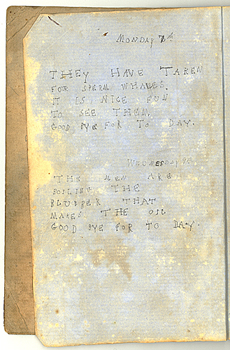 MONDAY 7th
THEY HAVE TAKEN
FOR SPERM WHALES.
IT IS NICE FUN
TO SEE THEM.
GOOD BYE FOR TO DAY.
WEDNESDAY
THE MEN ARE
BOILING THE
BLUBBER THAT
MAKES THE OIL
GOOD BYE FOR TO DAY.